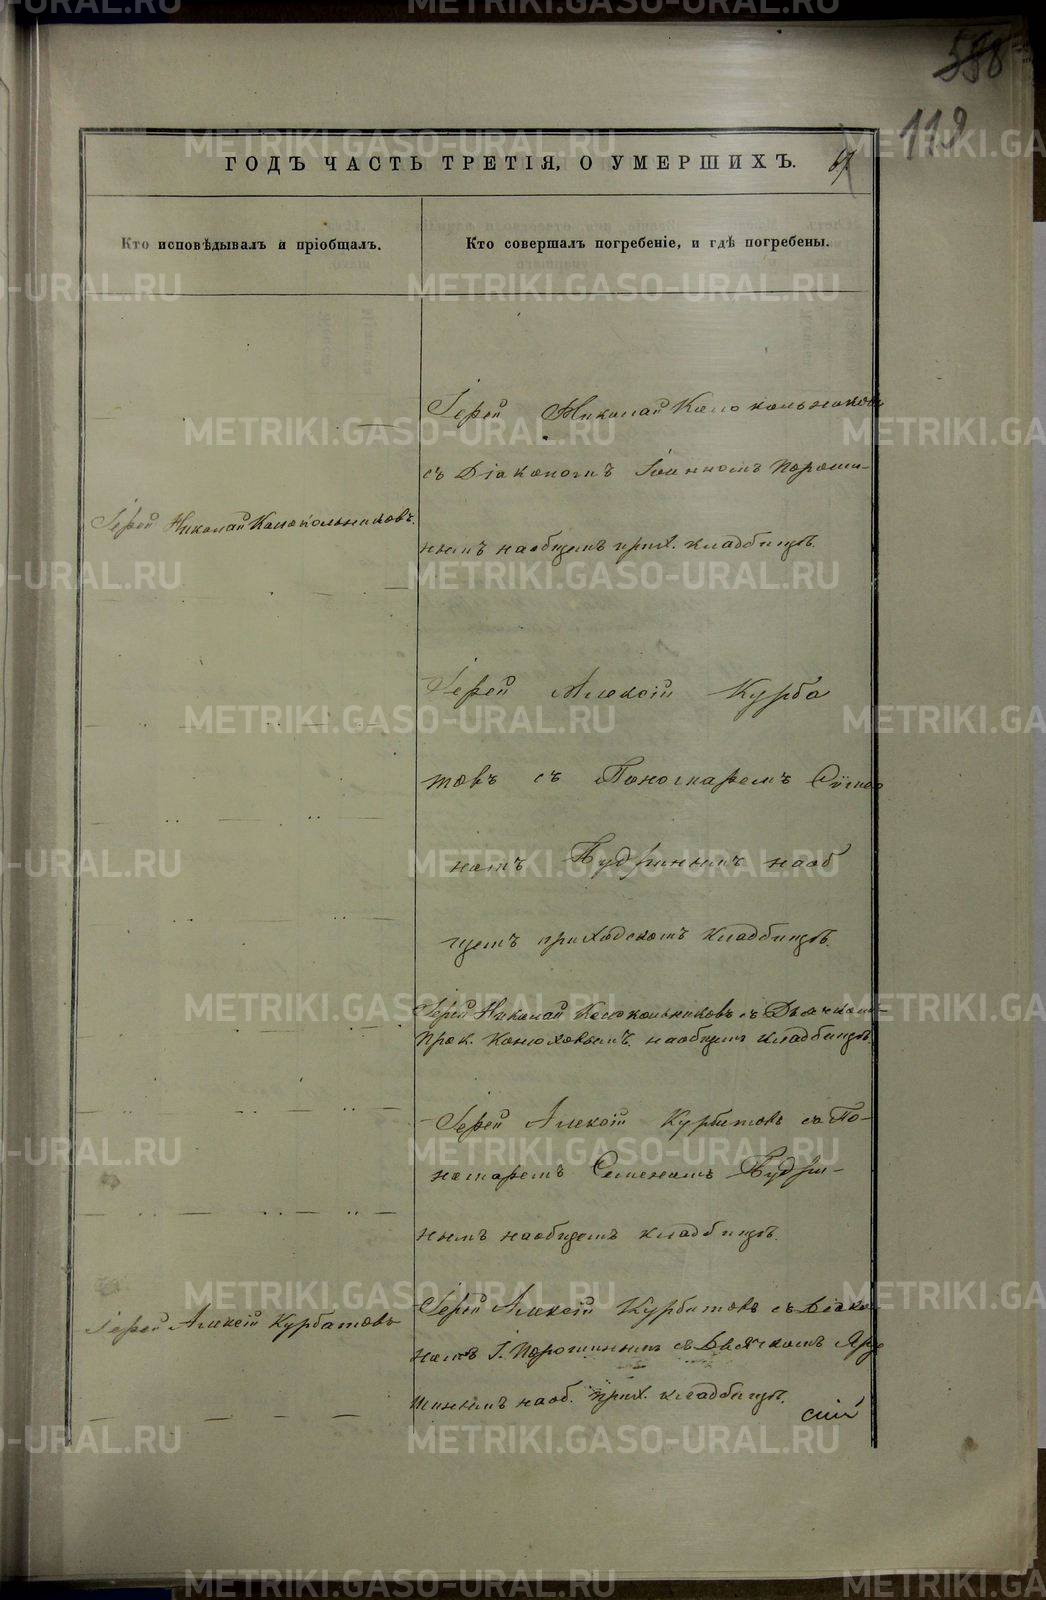 588
119
ГОДЪ ЧАСТЬ ТРЕТІЯ, О УМЕРШИХЪ.
Кто исповѣдывалъ и пріобщалъ.
Кто совершалъ погребеніе, и гдѣ погребены.
Іерей Николай Колокольниковъ
съ Діакономъ Іоанномъ Пороши-
нымъ на общемъ прих. кладбищѣ.
Іерей Николай Колокольниковъ.
Іерей Алексій Курба
товъ съ Пономаремъ
номъ Кудринымъ на об
щемъ приходскомъ кладбищѣ.
Іерей Николай Колокольниковъ съ Дьячкомъ
Прок. Конюховымъ на общемъ кладбищѣ.
Іерей Алексій Курбатовъ съ По-
номаремъ Семеномъ Кудри-
нымъ на общемъ кладбищѣ.
Іерей Алексій Курбатовъ
Іерей Алексій Курбатовъ съ Діако
номъ І. Порошинымъ съ Дьячкомъ
на об. прих. кладбищѣ.
METRIKI.GASO-URAL.RU